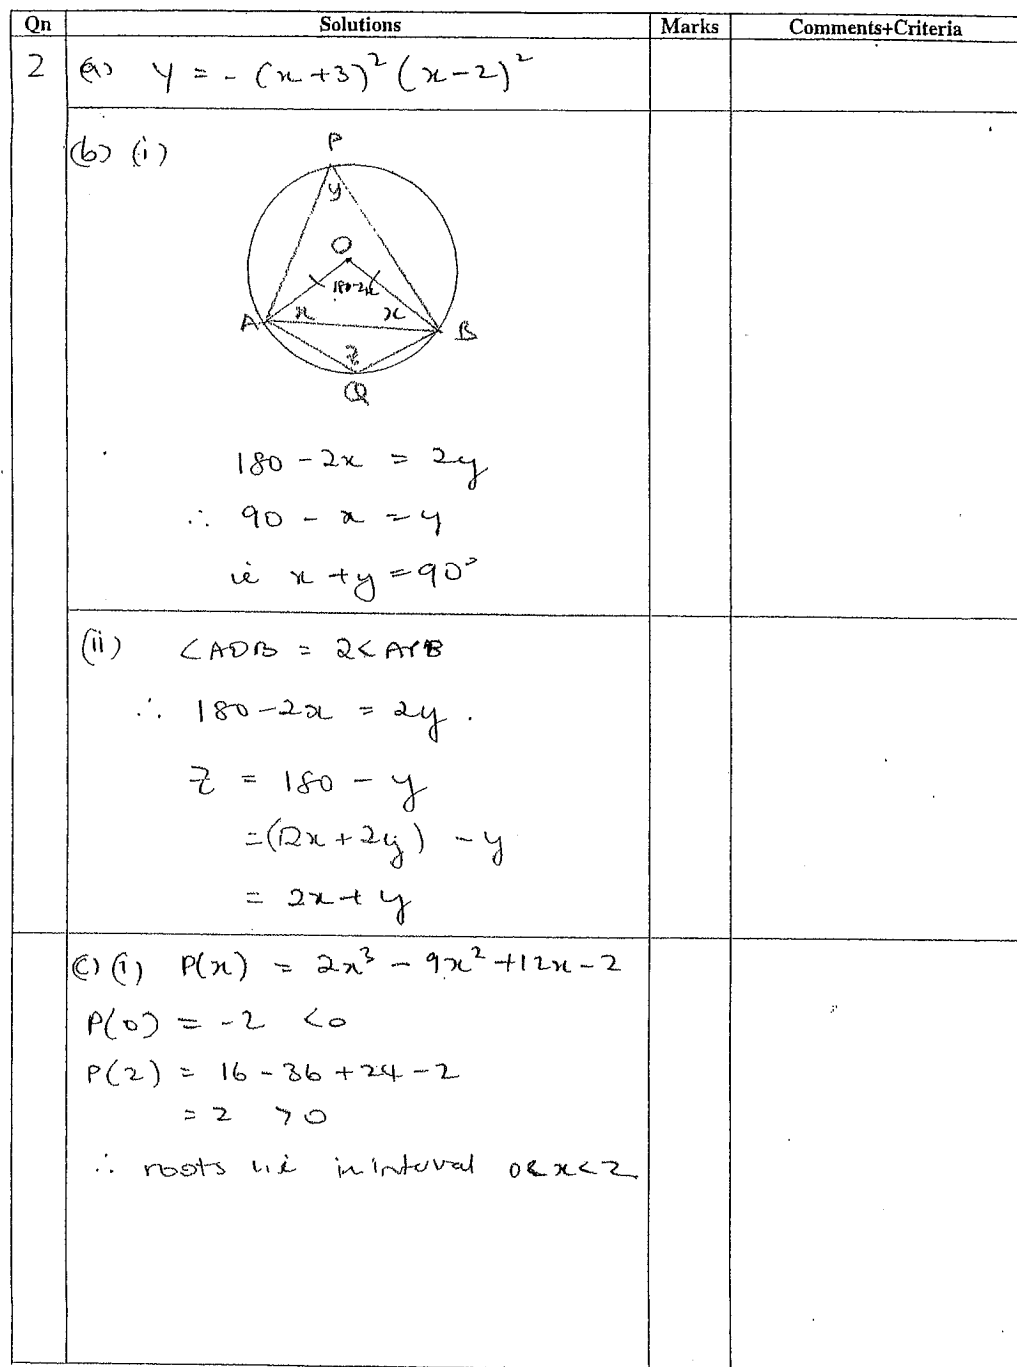 Qn Solutions Marks Comments+Criteria
2 (a) y = - (x+3)² (x-2)²
(b) (i)
P
y
O
180-2x
A x x B
z
Q
180 - 2x = 2y
∴ 90 - x = y
ie x + y = 90°
(ii) <AOB = 2<APB
∴ 180-2x = 2y.
z = 180 - y
=(2x + 2y) - y
= 2x + y
(c) (i) P(x) = 2x³ - 9x² +12x - 2
P(0) = -2 <0
P(2) = 16 - 36 + 24 - 2
= 2 >0
∴ roots lie in interval 0<x<2